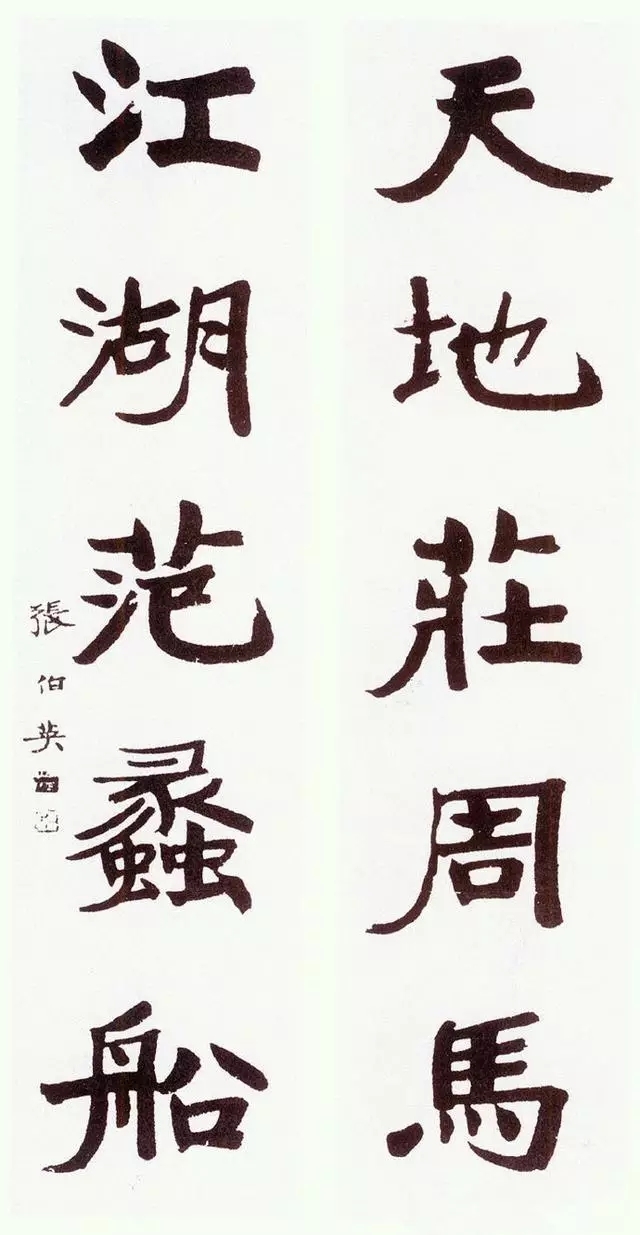 天地莊周馬
江湖范蠡船
張伯英